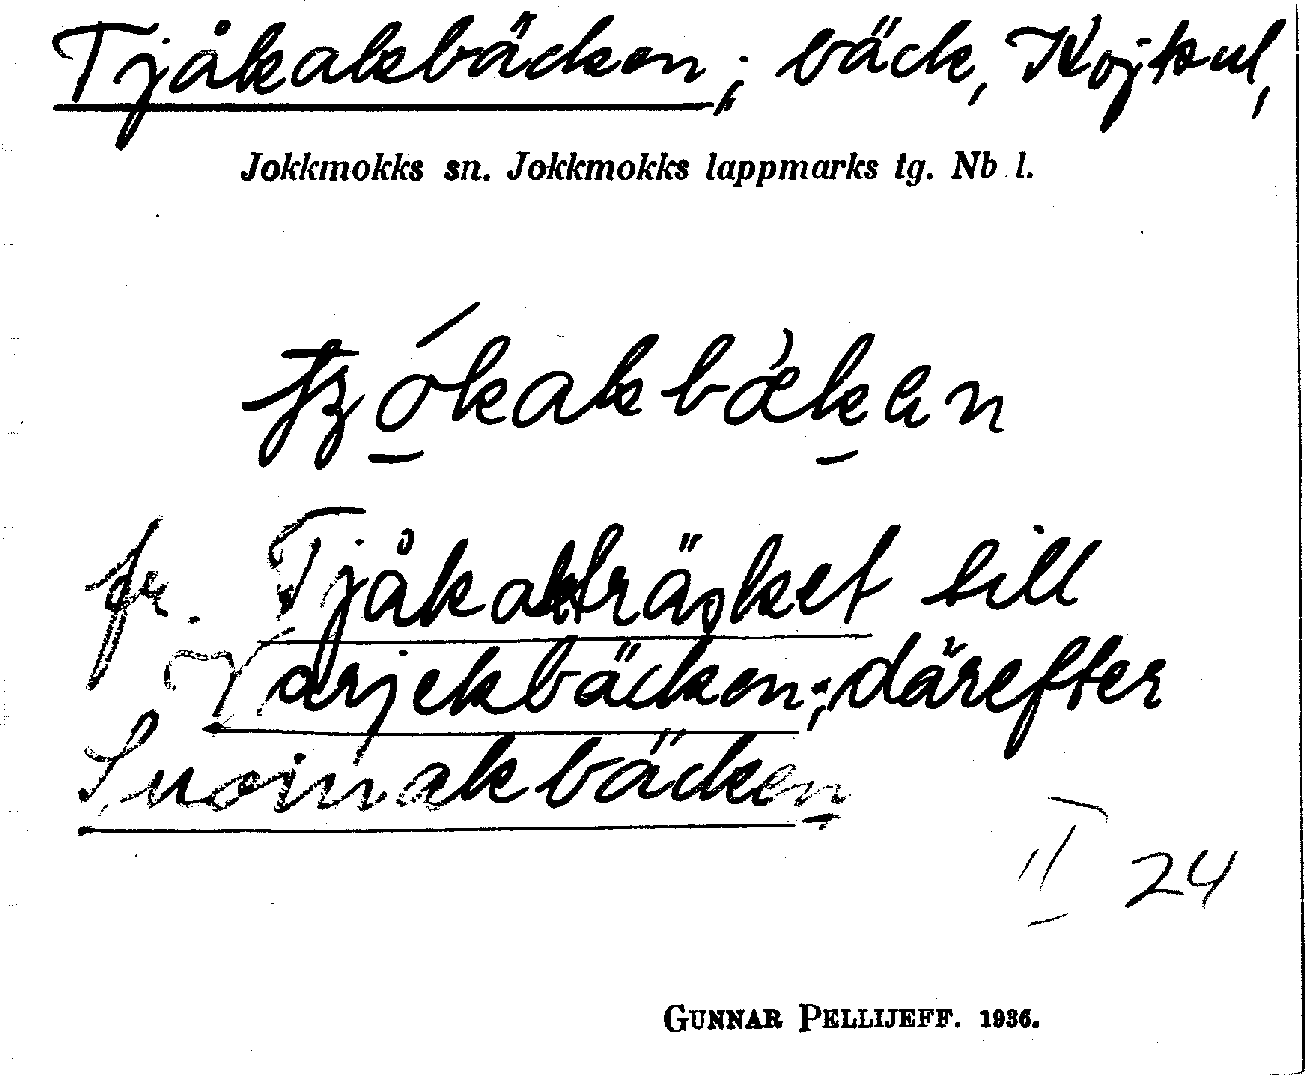 Tjåkakbäcken; bäck, Kojkul,
Jokkmokks sn. Jokkmokks lappmarks tg. Nb l.
fr. Tjåkakträsket till
Varjekbäcken; därefter
Suoinakbäcken
II 24
GUNNAR PELLIJEFF. 1936.